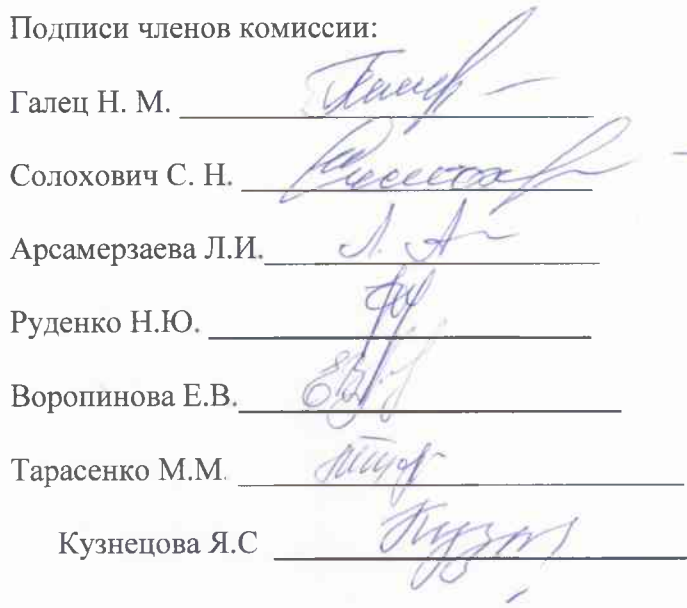 Подписи членов комиссии:
Галец Н. М.
Солохович С. Н.
Арсамерзаева Л.И.
Руденко Н.Ю.
Воропинова Е.В.
Тарасенко М.М.
Кузнецова Я.С